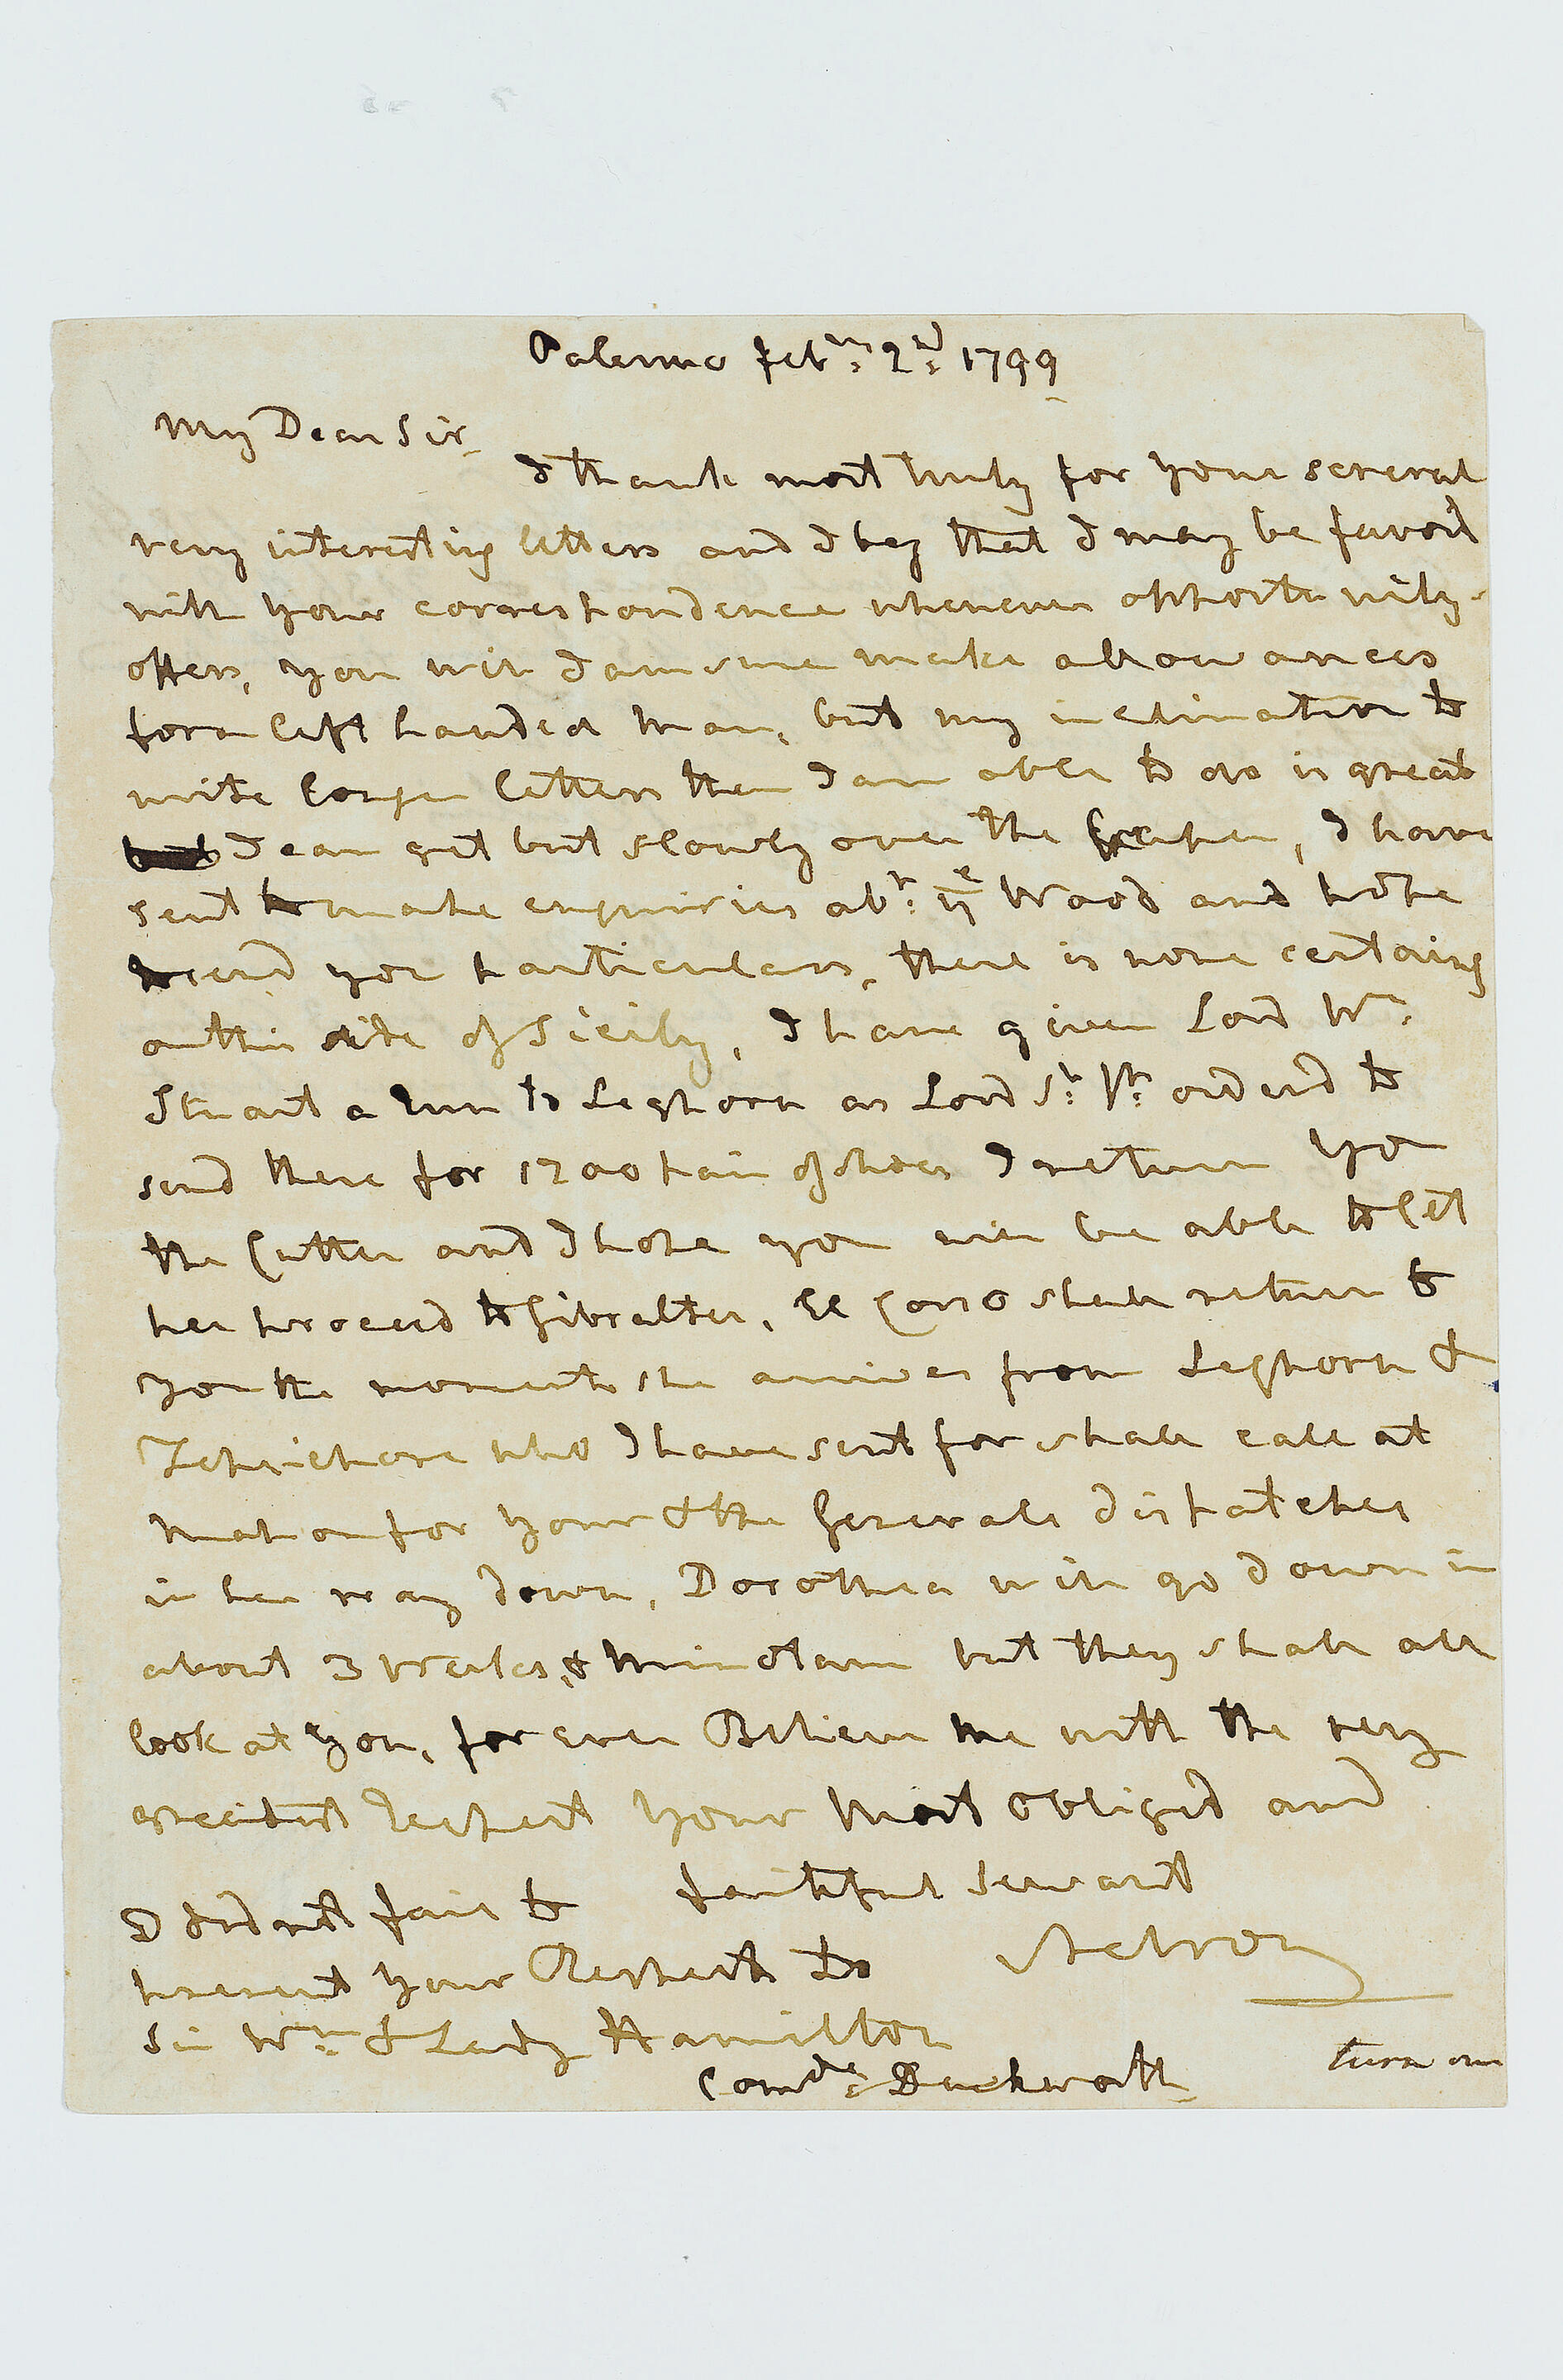 Palermo feby: 2nd: 1799
My Dear Sir
I thank most truly for your several
very interesting letters and I beg that I may be favord
with your correspondence whenever opportunity
offers, you will I am sure make allowances
for a left handed man, but my inclination to
write longer letters then I am able to do is great
I can get but slowly over the paper, I have
sent to make enquiries abt: ye Wood and hope
to send you particulars, there is none certainly
on this side of Sicily, I have given Lord Wm:
Stuart a run to Leghorn as Lord St: Vt: orderd to
send there for 1200 pair of shoes I return you
the Cutter and I hope you will be able to let
her proceed to Gibralter, El Corso shall return to
you the moment she arrives from Leghorn &
Terpsichore who I have sent for shall call at
Mahon for your & the Generals dispatches
in her way down, Dorothea will go down in
about 3 weeks, & Minotaur but they shall all
look at you, for ever Believe me with the very
greatest respect your Most obliged and
faithful Servant
Nelson
I did not fail to
present your Respects to
Sir Wm: & Lady Hamilton
Comde: Duckworth
turn over